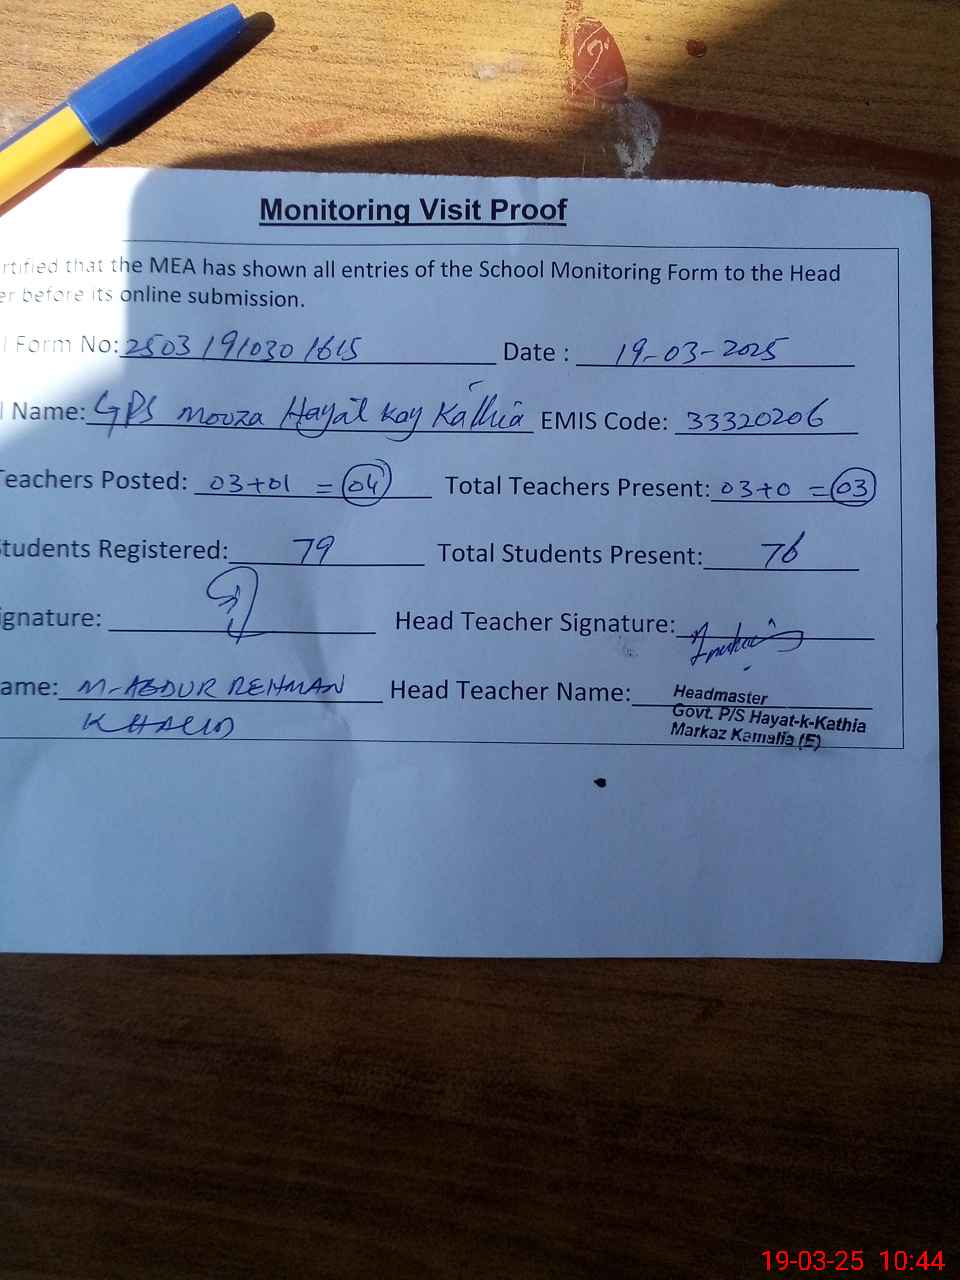 Monitoring Visit Proof
rtified that the MEA has shown all entries of the School Monitoring Form to the Head
er before its online submission.
l Form No: 2503191030 1615 Date : 19-03-2025
l Name: GPS mouza Hayat kay Kathia EMIS Code: 33320206
Teachers Posted: 03+01 = 04 Total Teachers Present: 03+0 = 03
Students Registered: 79 Total Students Present: 76
ignature: Head Teacher Signature:
ame: M-ABDUR REHMAN Head Teacher Name: Headmaster
KHALID Govt. P/S Hayat-k-Kathia
Markaz Kamalia (E)
19-03-25 10:44